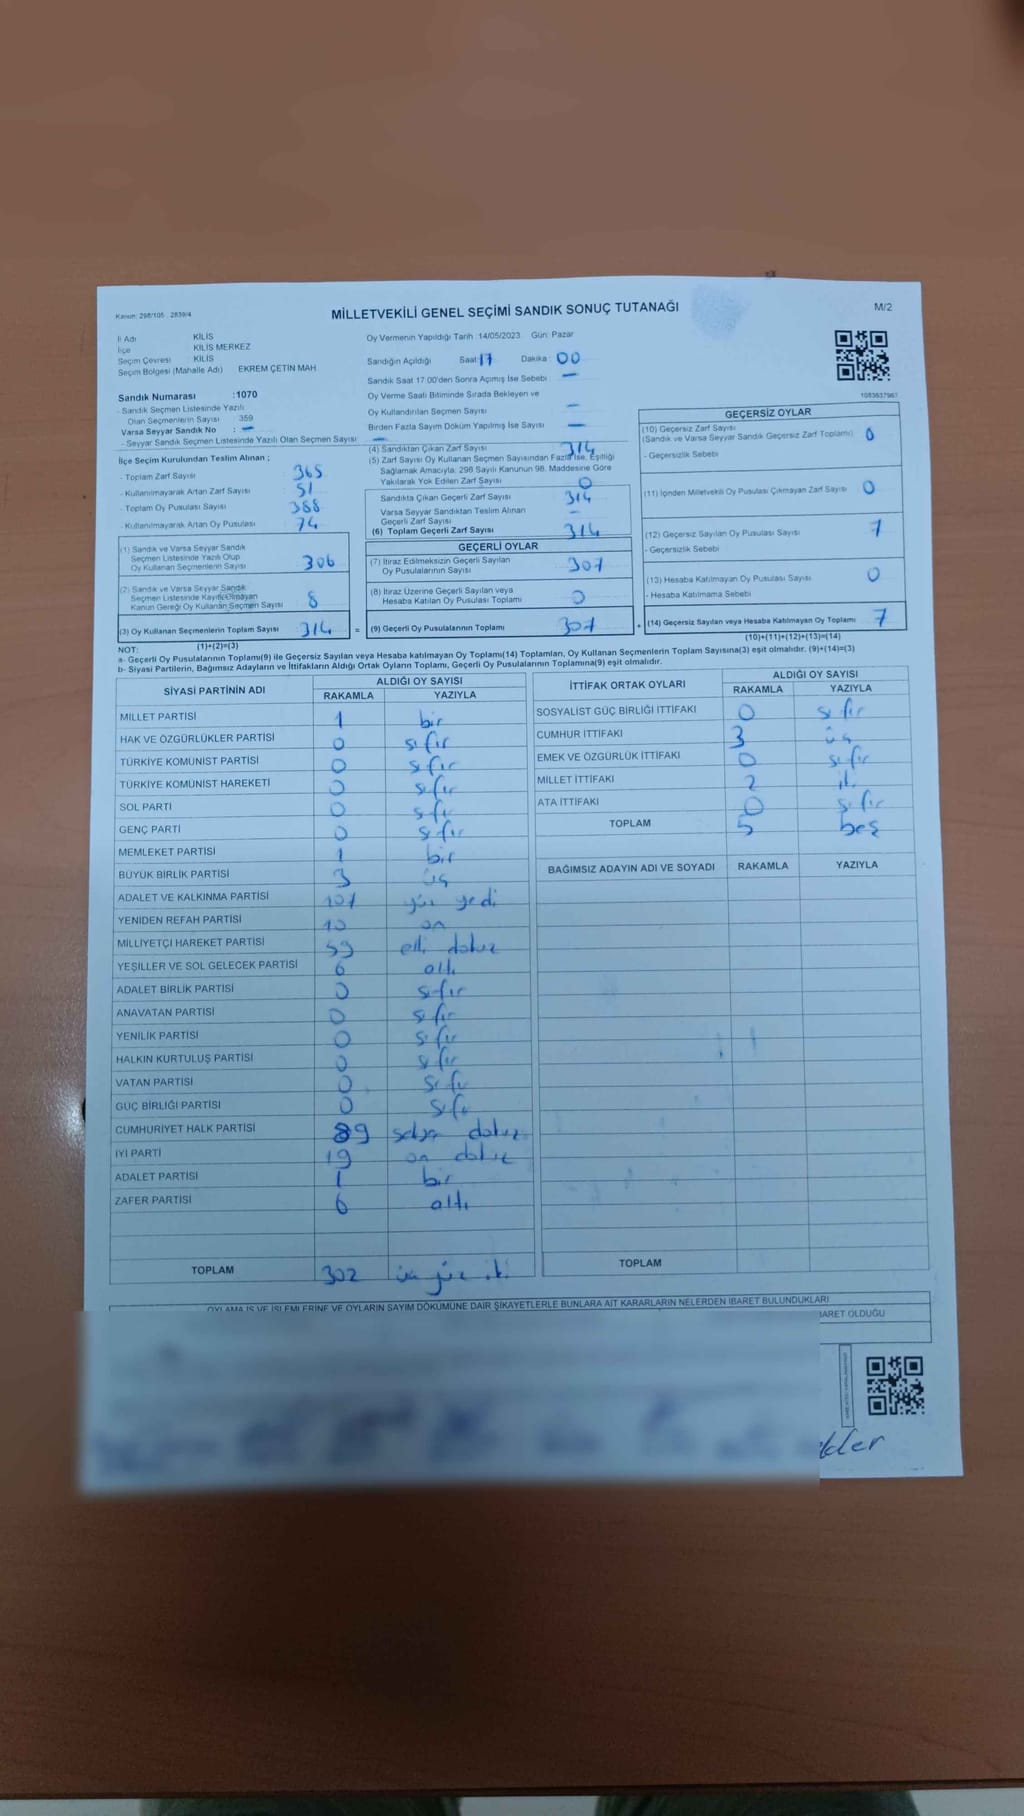 Kanun: 298/105 , 2839/4
MİLLETVEKİLİ GENEL SEÇİMİ SANDIK SONUÇ TUTANAĞI
M/2
İl Adı KİLİS
İlçe KİLİS MERKEZ
Seçim Çevresi KİLİS
Seçim Bölgesi (Mahalle Adı) EKREM ÇETİN MAH
Oy Vermenin Yapıldığı Tarih 14/05/2023 Gün: Pazar
Sandığın Açıldığı Saat 17 Dakika : 00
Sandık Saat 17:00'den Sonra Açımış İse Sebebi : —
Oy Verme Saati Bitiminde Sırada Bekleyen ve
Oy Kullandırılan Seçmen Sayısı —
Birden Fazla Sayım Döküm Yapılmış İse Sayısı —
1083837967
Sandık Numarası :1070
- Sandık Seçmen Listesinde Yazılı
Olan Seçmenlerin Sayısı : 359
Varsa Seyyar Sandık No : —
- Seyyar Sandık Seçmen Listesinde Yazılı Olan Seçmen Sayısı —
İlçe Seçim Kurulundan Teslim Alınan ;
- Toplam Zarf Sayısı 365
- Kullanılmayarak Artan Zarf Sayısı 51
- Toplam Oy Pusulası Sayısı 388
- Kullanılmayarak Artan Oy Pusulası 74
(1) Sandık ve Varsa Seyyar Sandık
Seçmen Listesinde Yazılı Olup
Oy Kullanan Seçmenlerin Sayısı 306
(2) Sandık ve Varsa Seyyar Sandık
Seçmen Listesinde Kayıtlı Olmayan
Kanun Gereği Oy Kullanan Seçmen Sayısı 8
(3) Oy Kullanan Seçmenlerin Toplam Sayısı 314 =
(1)+(2)=(3)
(4) Sandıktan Çıkan Zarf Sayısı 314
(5) Zarf Sayısı Oy Kullanan Seçmen Sayısından Fazla İse, Eşitliği
Sağlamak Amacıyla, 298 Sayılı Kanunun 98. Maddesine Göre
Yakılarak Yok Edilen Zarf Sayısı 0
Sandıkta Çıkan Geçerli Zarf Sayısı 314
Varsa Seyyar Sandıktan Teslim Alınan
Geçerli Zarf Sayısı —
(6) Toplam Geçerli Zarf Sayısı 314
GEÇERLİ OYLAR
(7) İtiraz Edilmeksizin Geçerli Sayılan
Oy Pusulalarının Sayısı 307
(8) İtiraz Üzerine Geçerli Sayılan veya
Hesaba Katılan Oy Pusulası Toplamı 0
(9) Geçerli Oy Pusulalarının Toplamı 307 +
GEÇERSİZ OYLAR
(10) Geçersiz Zarf Sayısı
(Sandık ve Varsa Seyyar Sandık Geçersiz Zarf Toplamı) 0
- Geçersizlik Sebebi
(11) İçinden Milletvekili Oy Pusulası Çıkmayan Zarf Sayısı 0
(12) Geçersiz Sayılan Oy Pusulası Sayısı 7
- Geçersizlik Sebebi
(13) Hesaba Katılmayan Oy Pusulası Sayısı 0
- Hesaba Katılmama Sebebi
(14) Geçersiz Sayılan veya Hesaba Katılmayan Oy Toplamı 7
(10)+(11)+(12)+(13)=(14)
NOT:
a- Geçerli Oy Pusulalarının Toplamı(9) ile Geçersiz Sayılan veya Hesaba katılmayan Oy Toplamı(14) Toplamları, Oy Kullanan Seçmenlerin Toplam Sayısına(3) eşit olmalıdır. (9)+(14)=(3)
b- Siyasi Partilerin, Bağımsız Adayların ve İttifakların Aldığı Ortak Oyların Toplamı, Geçerli Oy Pusulalarının Toplamına(9) eşit olmalıdır.
SİYASİ PARTİNİN ADI ALDIĞI OY SAYISI
RAKAMLA YAZIYLA
MİLLET PARTİSİ 1 bir
HAK VE ÖZGÜRLÜKLER PARTİSİ 0 sıfır
TÜRKİYE KOMÜNİST PARTİSİ 0 sıfır
TÜRKİYE KOMÜNİST HAREKETİ 0 sıfır
SOL PARTİ 0 sıfır
GENÇ PARTİ 0 sıfır
MEMLEKET PARTİSİ 1 bir
BÜYÜK BİRLİK PARTİSİ 3 üç
ADALET VE KALKINMA PARTİSİ 107 yüz yedi
YENİDEN REFAH PARTİSİ 10 on
MİLLİYETÇİ HAREKET PARTİSİ 59 elli dokuz
YEŞİLLER VE SOL GELECEK PARTİSİ 6 altı
ADALET BİRLİK PARTİSİ 0 sıfır
ANAVATAN PARTİSİ 0 sıfır
YENİLİK PARTİSİ 0 sıfır
HALKIN KURTULUŞ PARTİSİ 0 sıfır
VATAN PARTİSİ 0 sıfır
GÜÇ BİRLİĞİ PARTİSİ 0 sıfır
CUMHURİYET HALK PARTİSİ 89 seksen dokuz
İYİ PARTİ 19 on dokuz
ADALET PARTİSİ 1 bir
ZAFER PARTİSİ 6 altı
TOPLAM 302 üç yüz iki
İTTİFAK ORTAK OYLARI ALDIĞI OY SAYISI
RAKAMLA YAZIYLA
SOSYALİST GÜÇ BİRLİĞİ İTTİFAKI 0 sıfır
CUMHUR İTTİFAKI 3 üç
EMEK VE ÖZGÜRLÜK İTTİFAKI 0 sıfır
MİLLET İTTİFAKI 2 iki
ATA İTTİFAKI 0 sıfır
TOPLAM 5 beş
BAĞIMSIZ ADAYIN ADI VE SOYADI RAKAMLA YAZIYLA
TOPLAM
OYLAMA İŞ VE İŞLEMLERİNE VE OYLARIN SAYIM DÖKÜMÜNE DAİR ŞİKAYETLERLE BUNLARA AİT KARARLARIN NELERDEN İBARET BULUNDUKLARI
BARET OLDUĞU